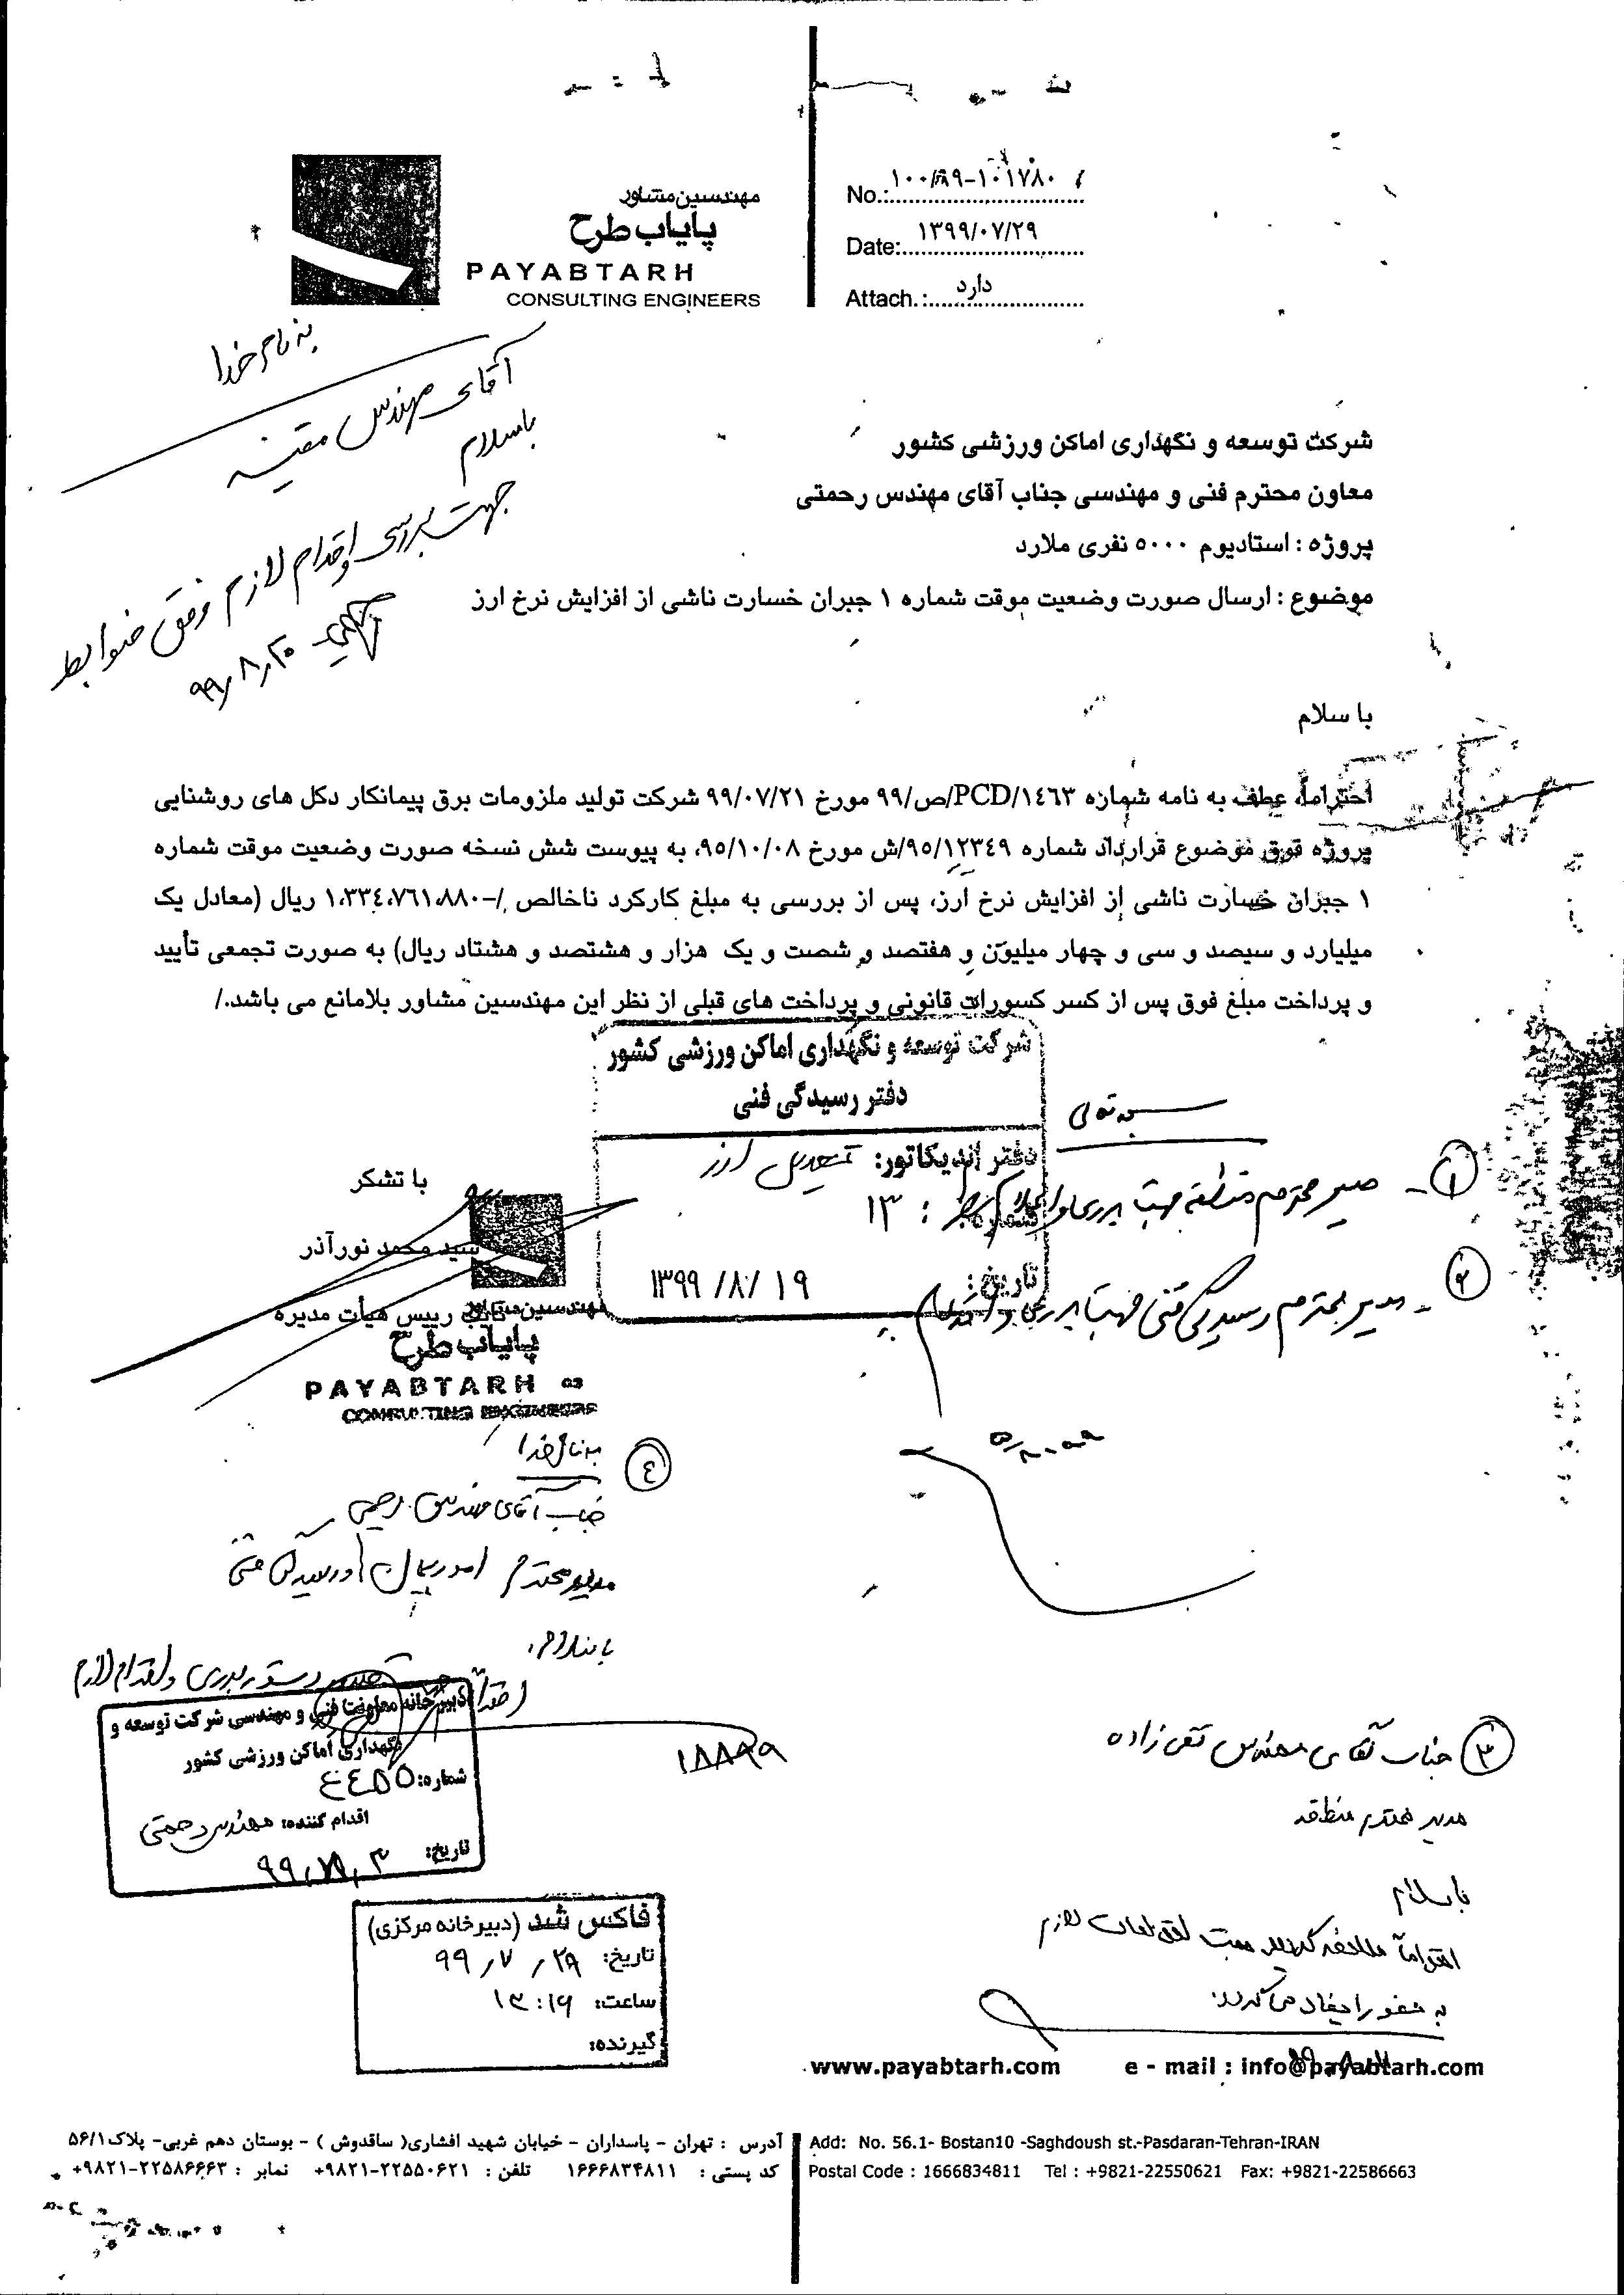 مهندسین مشاور
پایاب طرح
PAYABTARH
CONSULTING ENGINEERS
No.:
Date: ۱۳۹۹/۰۷/۲۹
Attach.: دارد
به نام خدا
آقای مهندس
با سلام
جهت بررسی و اقدام لازم وفق ضوابط
۹۹/۸/۲۰
شرکت توسعه و نگهداری اماکن ورزشی کشور
معاون محترم فنی و مهندسی جناب آقای مهندس رحمتی
پروژه : استادیوم ۵۰۰۰ نفری ملارد
موضوع : ارسال صورت وضعیت موقت شماره ۱ جبران خسارت ناشی از افزایش نرخ ارز
با سلام
احتراماً، عطف به نامه شماره PCD/۱٤٦۳/ص/۹۹ مورخ ۹۹/۰۷/۲۱ شرکت تولید ملزومات برق پیمانکار دکل های روشنایی
پروژه فوق موضوع قرارداد شماره ۹۵/۱۲۳٤۹/ش مورخ ۹۵/۱۰/۰۸، به پیوست شش نسخه صورت وضعیت موقت شماره
۱ جبران خسارت ناشی از افزایش نرخ ارز، پس از بررسی به مبلغ کارکرد ناخالص /-۱،۳۳٤،۷٦۱،۸۸۰ ریال (معادل یک
میلیارد و سیصد و سی و چهار میلیون و هفتصد و شصت و یک هزار و هشتصد و هشتاد ریال) به صورت تجمعی تأیید
و پرداخت مبلغ فوق پس از کسر کسورات قانونی و پرداخت های قبلی از نظر این مهندسین مشاور بلامانع می باشد./
شرکت توسعه و نگهداری اماکن ورزشی کشور
دفتر رسیدگی فنی
دفتر اندیکاتور: تعدیل ارز
شماره: ۱۳
تاریخ: ۱۳۹۹/۸/۱۹
۱- مدیر محترم منطقه جهت بررسی و
۲- مدیر محترم رسیدگی فنی جهت بررسی و اقدام
با تشکر
سید محمد نورآذر
نایب رییس هیأت مدیره
مهندسین مشاور
پایاب طرح
PAYABTARH
CONSULTING ENGINEERS
٤
به نام خدا
جناب آقای مهندس رحیمی
مدیر محترم امور پیمان و رسیدگی فنی
با سلام
دستور بررسی و اقدام لازم
دبیرخانه معاونت فنی و مهندسی شرکت توسعه و
نگهداری اماکن ورزشی کشور
شماره:
اقدام کننده: مهندس رحمتی
تاریخ:
۳ جناب آقای مهندس تقی زاده
مدیر محترم منطقه
با سلام
فاکس شد (دبیرخانه مرکزی)
تاریخ: ۹۹/۷/۲۹
ساعت: ۱۳:۱۶
گیرنده:
www.payabtarh.com e - mail : info@payabtarh.com
آدرس : تهران - پاسداران - خیابان شهید افشاری( ساقدوش ) - بوستان دهم غربی- پلاک۵۶/۱
کد پستی : ۱۶۶۶۸۳۴۸۱۱ تلفن : ۲۲۵۵۰۶۲۱-۹۸۲۱+ نمابر : ۲۲۵۸۶۶۶۳-۹۸۲۱+
Add: No. 56.1- Bostan10 -Saghdoush st.-Pasdaran-Tehran-IRAN
Postal Code : 1666834811 Tel : +9821-22550621 Fax: +9821-22586663